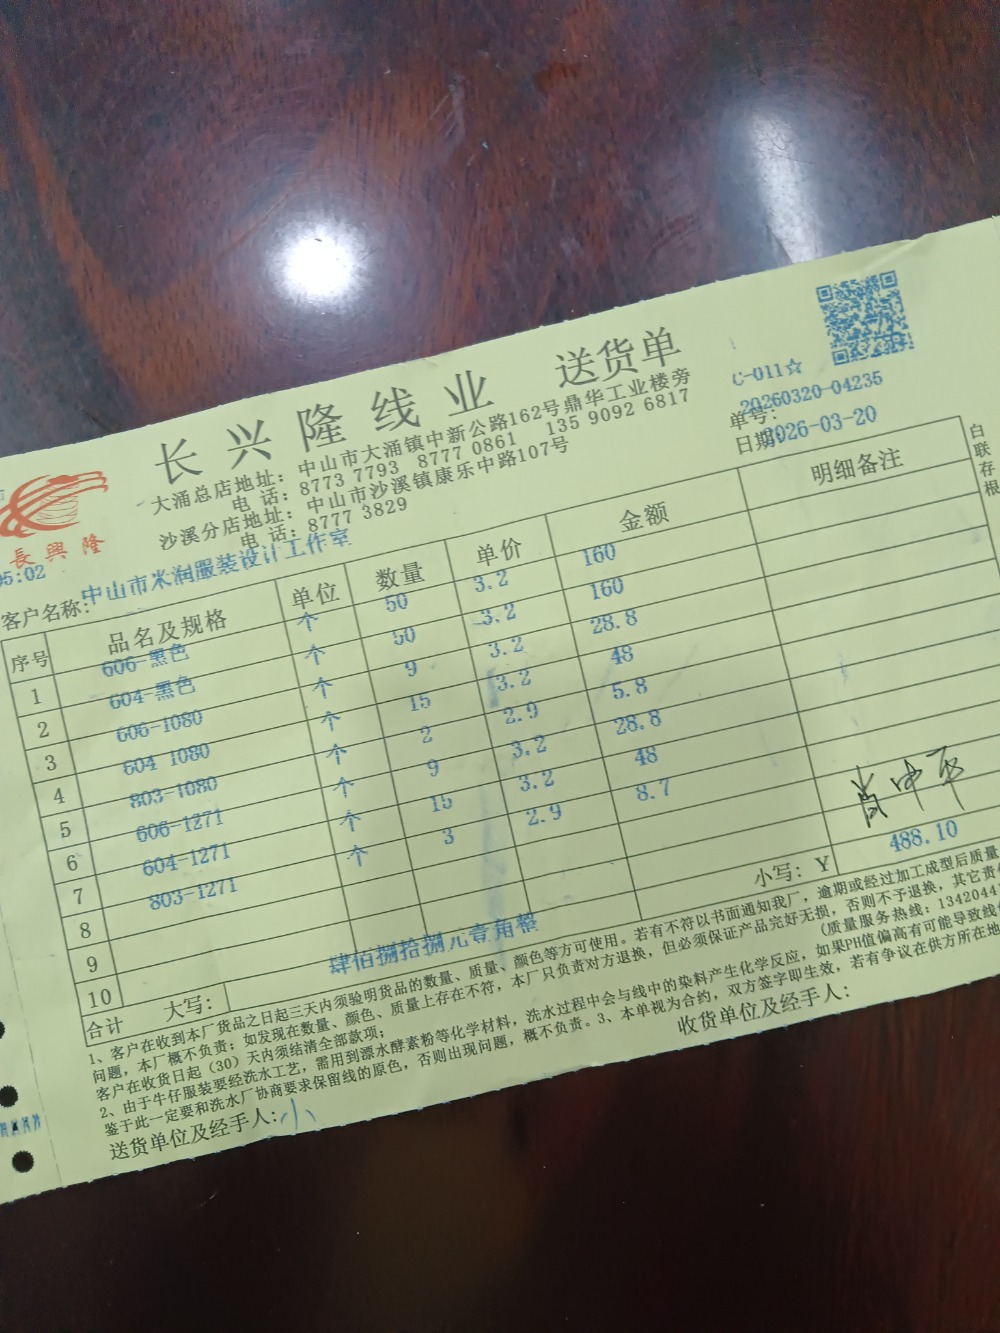 C-011☆
长兴隆线业 送货单
20260320-04235
单号:
大涌总店地址: 中山市大涌镇中新公路162号鼎华工业楼旁
日期: 2026-03-20
电 话: 8773 7793 8777 0861 135 9092 6817
沙溪分店地址: 中山市沙溪镇康乐中路107号
电 话: 8777 3829
長興隆
05:02
客户名称: 中山市米润服装设计工作室
白联存根
序号 品名及规格 单位 数量 单价 金额 明细备注
1 606-黑色 个 50 3.2 160
2 604-黑色 个 50 3.2 160
3 606-1080 个 9 3.2 28.8
4 604 1080 个 15 3.2 48
5 803-1080 个 2 2.9 5.8
6 606-1271 个 9 3.2 28.8
7 604-1271 个 15 3.2 48
8 803-1271 个 3 2.9 8.7
9
10
合计 大写: 肆佰捌拾捌元壹角整 小写: Y 488.10
1、客户在收到本厂货品之日起三天内须验明货品的数量、质量、颜色等方可使用。若有不符以书面通知我厂, 逾期或经过加工成型后质量
问题, 本厂概不负责; 如发现在数量、颜色、质量上存在不符, 本厂只负责对方退换, 但必须保证产品完好无损, 否则不予退换, 其它责
客户在收货日起(30)天内须结清全部款项; (质量服务热线: 1342044
2、由于牛仔服装要经洗水工艺, 需用到漂水酵素粉等化学材料, 洗水过程中会与线中的染料产生化学反应, 如果PH值偏高有可能导致线
鉴于此一定要和洗水厂协商要求保留线的原色, 否则出现问题, 概不负责。3、本单视为合约, 双方签字即生效, 若有争议在供方所在地
送货单位及经手人: 小 收货单位及经手人: